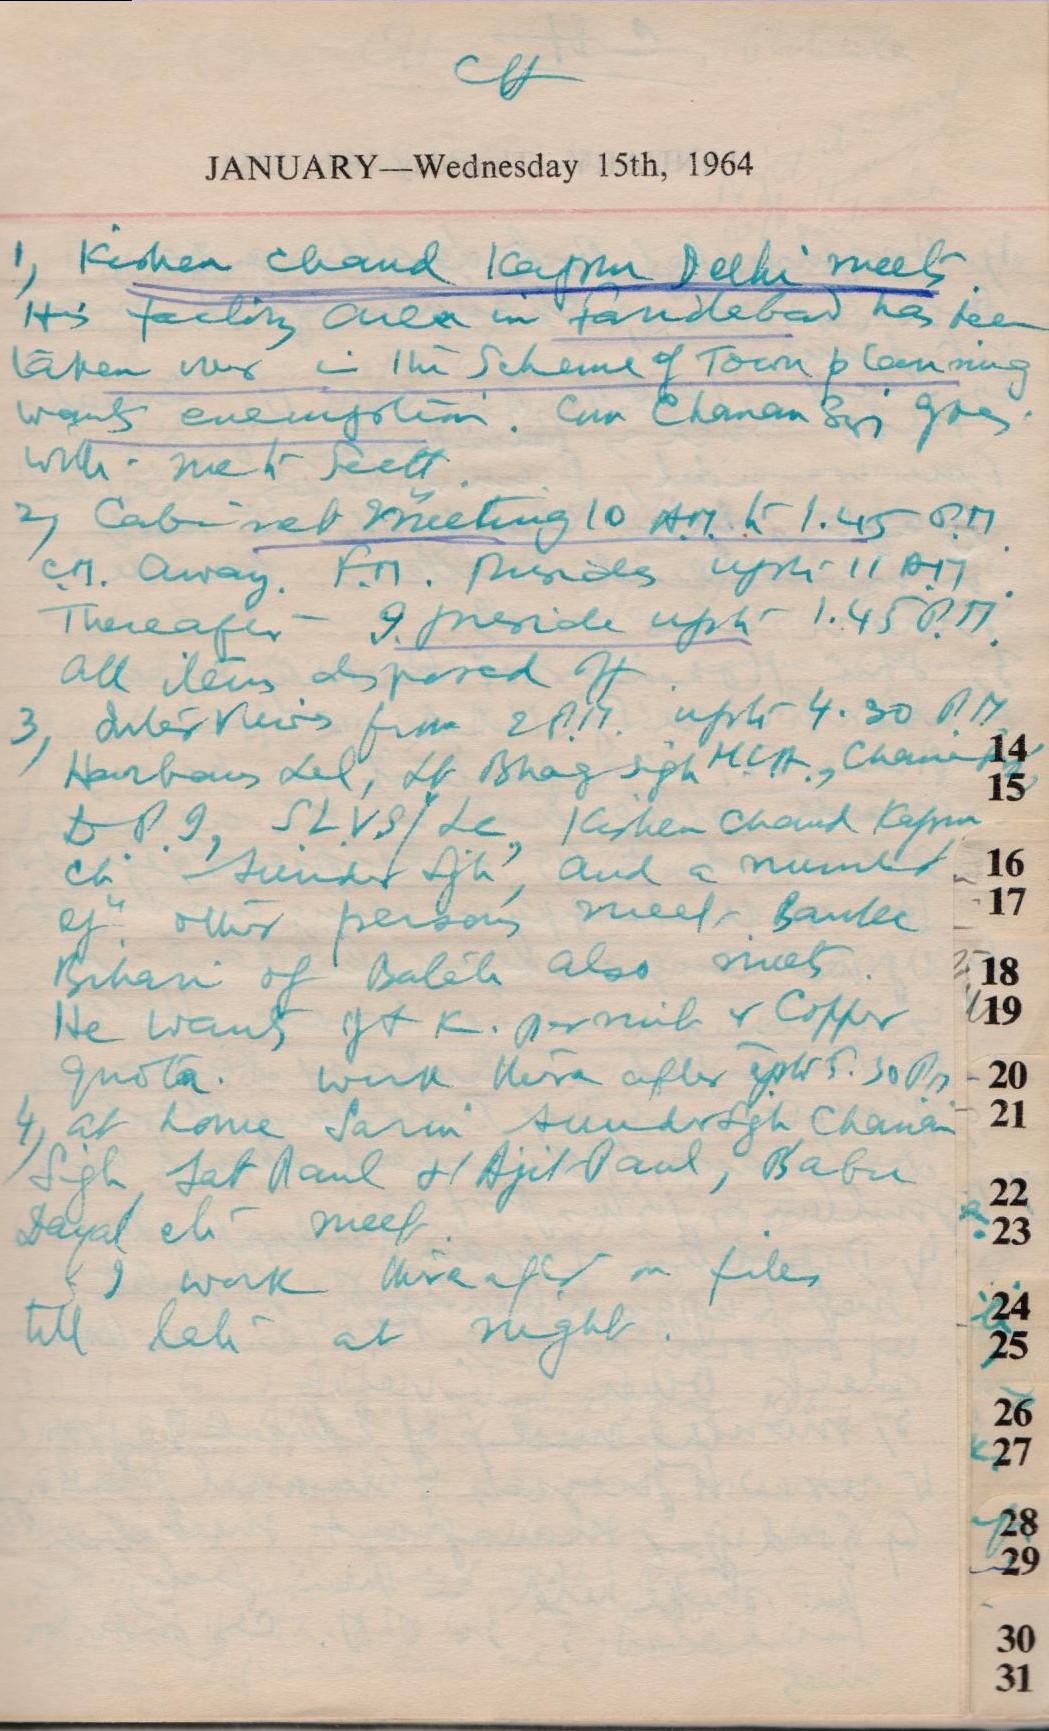 CH
JANUARY—Wednesday 15th, 1964
1, Kishen Chand Kapur Delhi meets.
His factory area in Faridabad has been
taken over in the Scheme of Town planning
wants exemption. Chanan goes
with me to Sectt.
2, Cabinet Meeting 10 A.M. to 1.45 P.M.
C.M. Away. F.M. Presides upto 11 AM.
Thereafter I preside upto 1.45 P.M.
All items disposed off.
3, Interviews from 2 P.M. upto 4.30 P.M
Harbans Lal, Bhag Sigh M.L.A.,
D.P.I, Kishen Chand Kapur
etc Sunder Sgh, and a number
of other persons meet. Banke
Bihari of Batala also meets.
He wants permit & Copper
quota. work there after upto 5.30 PM
4, at home Sarin Sunder Sgh Chanan
Sigh, Sat Paul Ajit Paul, Babu
Dayal etc meet.
I work thereafter on files
till late at night.
14
15
16
17
18
19
20
21
22
23
24
25
26
27
28
29
30
31